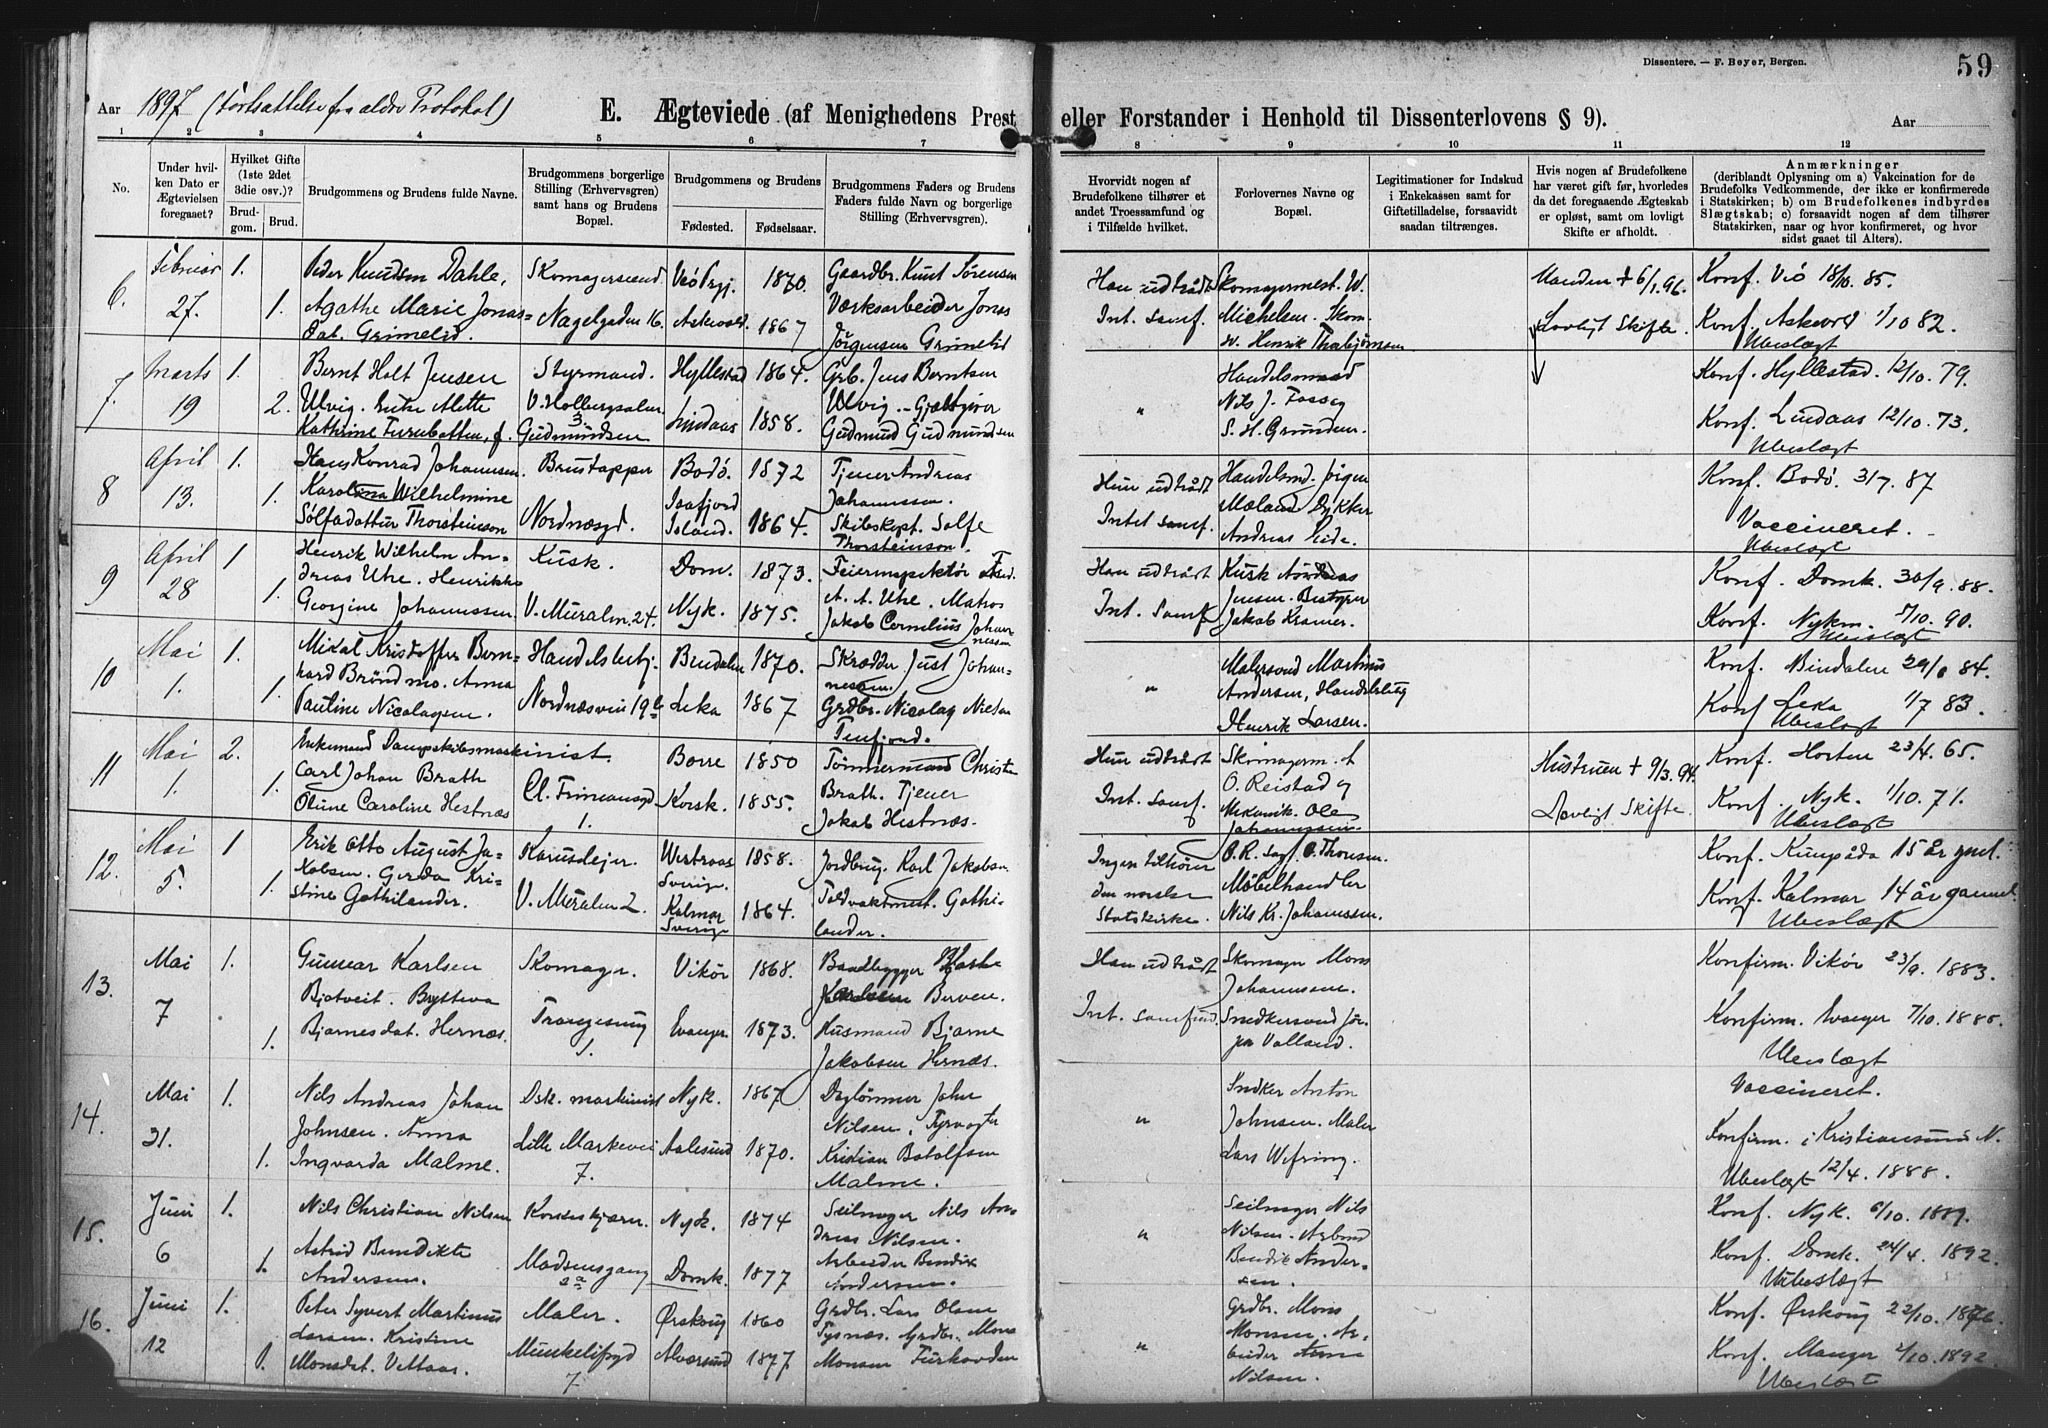 Dissentere. — F. Beyer, Bergen.
59
Aar 1897 (fortsættelse fra ældre Protokol)
E. Ægteviede (af Menighedens Prest eller Forstander i Henhold til Dissenterlovens § 9).
Aar
1 2 3 4 5 6 7 8 9 10 11 12
No.
Under hvil-
ken Dato er
Ægtevielsen
foregaaet?
Hvilket Gifte
(1ste 2det
3die osv.)?
Brud-
gom.
Brud.
Brudgommens og Brudens fulde Navne.
Brudgommens borgerlige
Stilling (Erhvervsgren)
samt hans og Brudens
Bopæl.
Brudgommens og Brudens
Fødested.
Fødselsaar.
Brudgommens Faders og Brudens
Faders fulde Navn og borgerlige
Stilling (Erhvervsgren).
Hvorvidt nogen af
Brudefolkene tilhører et
andet Troessamfund og
i Tilfælde hvilket.
Forlovernes Navne og
Bopæl.
Legitimationer for Indskud
i Enkekassen samt for
Giftetilladelse, forsaavidt
saadan tiltrænges.
Hvis nogen af Brudefolkene
har været gift før, hvorledes
da det foregaaende Ægteskab
er opløst, samt om lovligt
Skifte er afholdt.
Anmærkninger
(deriblandt Oplysning om a) Vakcination for de
Brudefolks Vedkommende, der ikke er konfirmerede
i Statskirken; b) om Brudefolkenes indbyrdes
Slægtskab; c) forsaavidt nogen af dem tilhører
Statskirken, naar og hvor konfirmeret, og hvor
sidst gaaet til Alters).
6. Februar 27. 1. 1.
Peder Knudsen Dahle,
Agathe Marie Jonas=
dat. Grimelid.
Skomagersvend
Nagelgaden 16.
1870.
Askevold 1867
Gaardbr. Knut Sørensen
Værksarbeider Jonas
Jørgensen Grimelid
Han udtrådt
Int. Samf.
Skomagermest. W.
Michelsen. Skom.
sv. Henrik Thorbjørnsen
Manden + 6/1.96.
Lovligt Skifte.
Konf. Viö 18/10. 85.
Konf. Askevold 1/10 82.
Ubeslægt
7. Marts 19 1. 2.
Bernt Holt Jensen
Ulvig. Mette
Kathrine f. Gudmundsen
Styrmand.
3.
Hyllestad 1864.
Lindaas 1858.
Grb. Jens Berntsen
Ulvig. - Gjæstgiver
Gudmund Gudmundsen
"
Handelsmand
Nils J. Fosse og
Konf. Hyllestad. 12/10. 79.
Konf. Lindaas 12/10. 73.
Ubeslægt
8 April 13. 1. 1.
Hans Konrad Johannsen.
Karolina Wilhelmine
Sølfadottur Thorsteinson
Brustapper
Nordnæsgd.
Bodö. 1872
Isafjord
Island. 1864.
Tjener Andreas
Johannssen.
Skibskapt. Sølfe
Thorsteinson.
Hun udtrådt
Intet samf.
Handelsmd. Jørgen
Mæland Dykker
Andreas Eide.
Konf. Bodö. 31/7. 87
Vaccineret.
Ubeslægt
9 April 28 1 1.
Henrik Wilhelm An-
dreas Uhe. Henrikke
Georgine Johannssen.
Kusk.
V. Muralm. 24.
Dom. 1873.
Nyk. 1875.
Feierinspektør Fred.
A. A. Uhe. Matros
Jakob Cornelius Johan-
nessen
Han udtrådt
Int. Samf.
Kusk Andreas
Jensen. Bestyrer
Jakob Kramer.
Konf. Domk. 30/9. 88.
Konf. Nykm. 5/10. 90.
Ubeslægt
10 Mai 1. 1. 1.
Mikal Kristoffer Bern-
hard Brøndmo. Anna
Pauline Nicolaysen.
Handelsbetj.
Nordnæsvei 19b
Bindalen 1870.
Leka 1867
Skrædder Just Johan-
nessen.
Grdbr. Nicolay Nilsen
Terfjord.
"
Malersvend Martinus
Andersen, Handelsbetj
Henrik Larsen.
Konf. Bindalen 29/6 84.
Konf Leka 1/7 83.
Ubeslægt
11 Mai 1. 2. 1.
Enkemand Dampskibsmaskinist.
Carl Johan Brath
Oline Caroline Hestnæs
1.
Borre 1850
Korsk. 1855.
Tømmermand Christen
Brath. Tjener
Jakob Hestnæs.
Hun udtrådt
Int. samf.
Skomagerm.
O. Reistad og
Mekanik. Ole
Johannessen.
Hustruen + 9/3.94.
Lovligt Skifte
Konf. Horten 23/4. 65.
Konf. Nyk. 1/10. 71.
Ubeslægt
12. Mai 5. 1 1.
Erik Otto August Ja-
kobsen. Gerda Kri-
stine Gothilander.
V. Muralm 2.
1858.
Sverige.
Kalmar 1864.
Sverige
Jordbrug. Karl Jakobsen
Toldvaktmest. Gothi-
lander.
Ingen tilhører
den norske
Statskirke.
Thonsen.
Møbelhandler
Nils Kr. Johannssen.
Konf. 15 år gml.
Konf. Kalmar 14 år gammel
Ubeslægt
13. Mai 7 1. 1.
Gunnar Karlsen
Bjotveit. Brytteva
Bjarnesdat. Hernæs.
Skomager.
1.
Vikör 1868.
Evanger. 1873.
Berven.
Husmand Bjarne
Jakobsen Hernæs.
Han udtrådt
Int. Samfund.
Skomager Mons
Johannsen.
Snedkersvend Jör-
gen Valland.
Konfirm. Vikör 23/9. 1883.
Konfirm. Evanger 7/10. 1888.
Ubeslægt
14. Mai 31. 1. 1.
Nils Andreas Johan
Johnsen. Anna
Ingvarda Malme.
Dsk. maskinist
Lille Markevei
7.
Nyk. 1867
Aalesund 1870.
Daglønner John
Nilsen. Fyrvogter
Kristian Botolfsen
Malme.
"
Snedker Anton
Johnsen. Maler
Lars Wefring.
Vaccineret.
Konfirm. i Kristiansund N.
12/4. 1888.
Ubeslægt
15. Juni 6 1. 1.
Nils Christian Nilsen
Astrid Bendikte
Andersen.
Madsensgang
2a
Nyk. 1874
Domk. 1877
Seilmager Nils An-
dreas Nilsen.
Arbeider Bendix
Andersen.
"
Seilmager Nils
Nilsen. Arbmd
Bendik Ander-
sen.
Konf. Nyk. 6/10. 1889.
Konf. Domk. 24/4. 1892.
Ubeslægt
16. Juni 12 1. 1.
Peter Syvert Martinus
Larsen. Kristine
Monsdat. Vettaas.
Maler.
7
Ørskoug 1860
Alversund 1877
Grdbr. Lars Olsen
Tysnæs. Grdbr. Mons
Monsen
"
Grdbr. Mons
Monsen. Ar-
beider
Nilsen.
Konf. Ørskoug 22/10. 1876.
Konf. Manger 2/10. 1892.
Ubeslægt